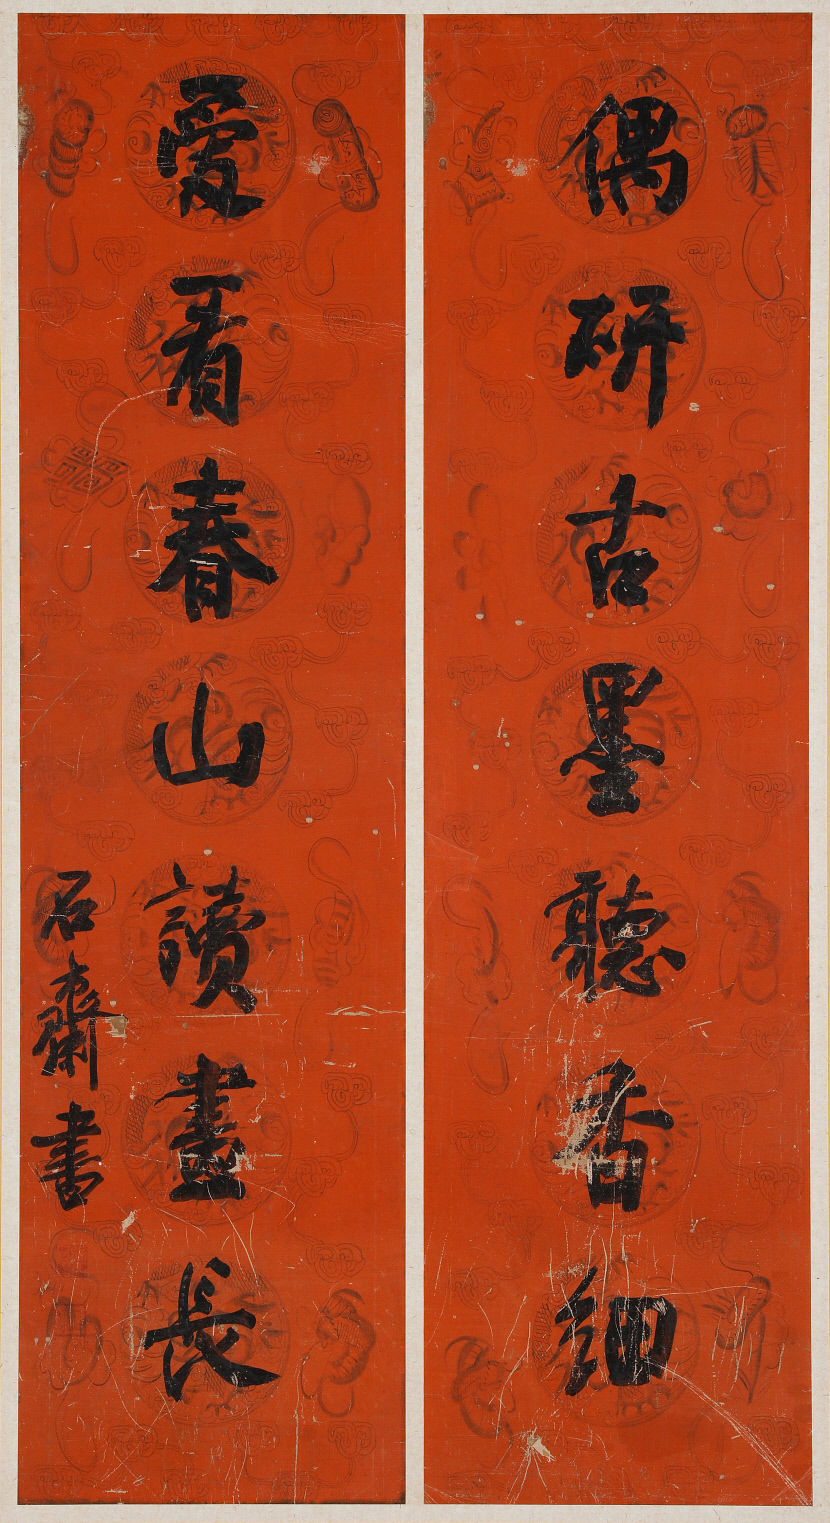 偶研古墨聽香細
愛看春山讀畫長
石齋書